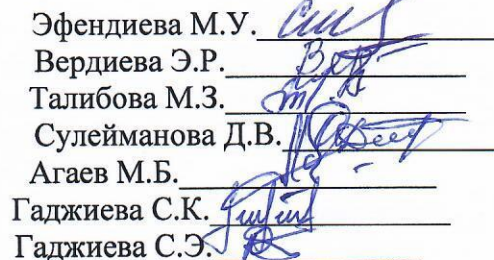 Эфендиева М.У.
Вердиева Э.Р.
Талибова М.З.
Сулейманова Д.В.
Агаев М.Б.
Гаджиева С.К.
Гаджиева С.Э.